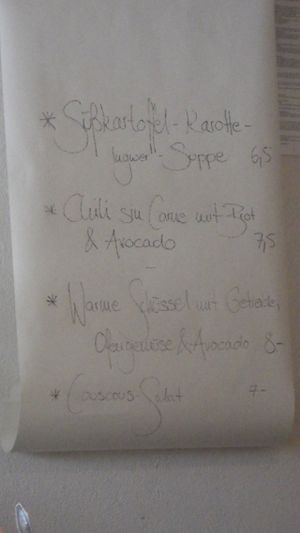 * Süßkartoffel-Karotte-
Ingwer-Suppe 6,5
* Chili sin Carne mit Brot
& Avocado 7,5
* Warme Schüssel mit Getreide,
Ofengemüse & Avocado 8-
* Couscous-Salat 7-